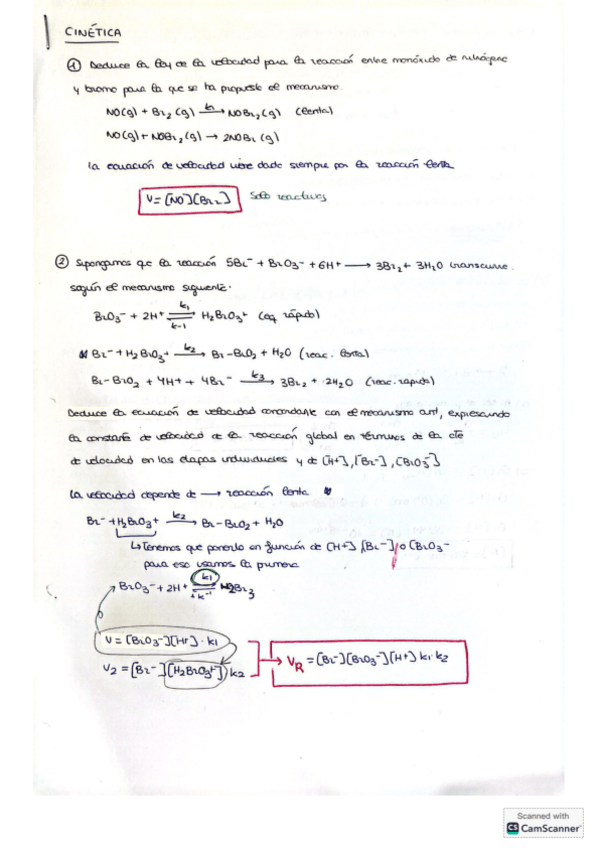 CINÉTICA
① Deduce la ley de la velocidad para la reacción entre monóxido de nitrógeno
y bromo para la que se ha propuesto el mecanismo.
NO(g) + Br₂(g) →k₁ NOBr₂(g) (lenta)
NO(g) + NOBr₂(g) → 2NOBr(g)
la ecuación de velocidad viene dada siempre por la reacción lenta
V = [NO][Br₂] Solo reactivos
② Supongamos que la reacción 5Br⁻ + BrO₃⁻ + 6H⁺ → 3Br₂ + 3H₂O transcurre
según el mecanismo siguiente.
BrO₃⁻ + 2H⁺ ⇌ k₁ k₋₁ H₂BrO₃⁺ (eq. rápido)
Br⁻ + H₂BrO₃⁺ →k₂ Br-BrO₂ + H₂O (reac. lenta)
Br-BrO₂ + 4H⁺ + 4Br⁻ →k₃ 3Br₂ + 2H₂O (reac. rápida)
Deduce la ecuación de velocidad concordante con el mecanismo ant, expresando
la constante de velocidad de la reacción global en términos de la cte
de velocidad en las etapas individuales y de [H⁺], [Br⁻], [BrO₃⁻]
la velocidad depende de → reacción lenta
Br⁻ + H₂BrO₃⁺ →k₂ Br-BrO₂ + H₂O
↳ Tenemos que ponerlo en función de [H⁺] [Br⁻] o [BrO₃⁻
para eso usamos la primera
BrO₃⁻ + 2H⁺ ⇌ k₁
V = [BrO₃⁻][H⁺] · k₁
V₂ = [Br⁻][H₂BrO₃⁺] k₂
V_R = [Br⁻][BrO₃⁻][H⁺] k₁ k₂
Scanned with
CS CamScanner